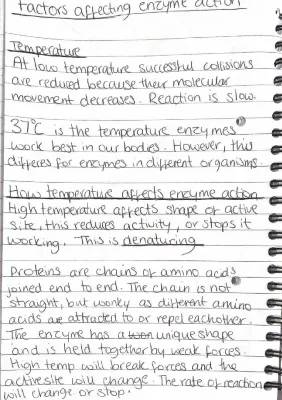 factors affecting enzyme action
Temperature
At low temperature successful collisions
are reduced because their molecular
movement decreases. Reaction is slow.
37°C is the temperature enzymes
work best in our bodies. However, this
differes for enzymes in different organisms.
How temperature affects enzyme action
High temperature affects shape of active
site, this reduces activity, or stops it
working. This is denaturing
Proteins are chains of amino acids
joined end to end. The chain is not
straight, but wonky as different amino
acids are attracted to or repel eachother.
The enzyme has a unique shape
and is held together by weak forces.
High temp will break forces and the
active site will change. The rate of reaction
will change or stop.